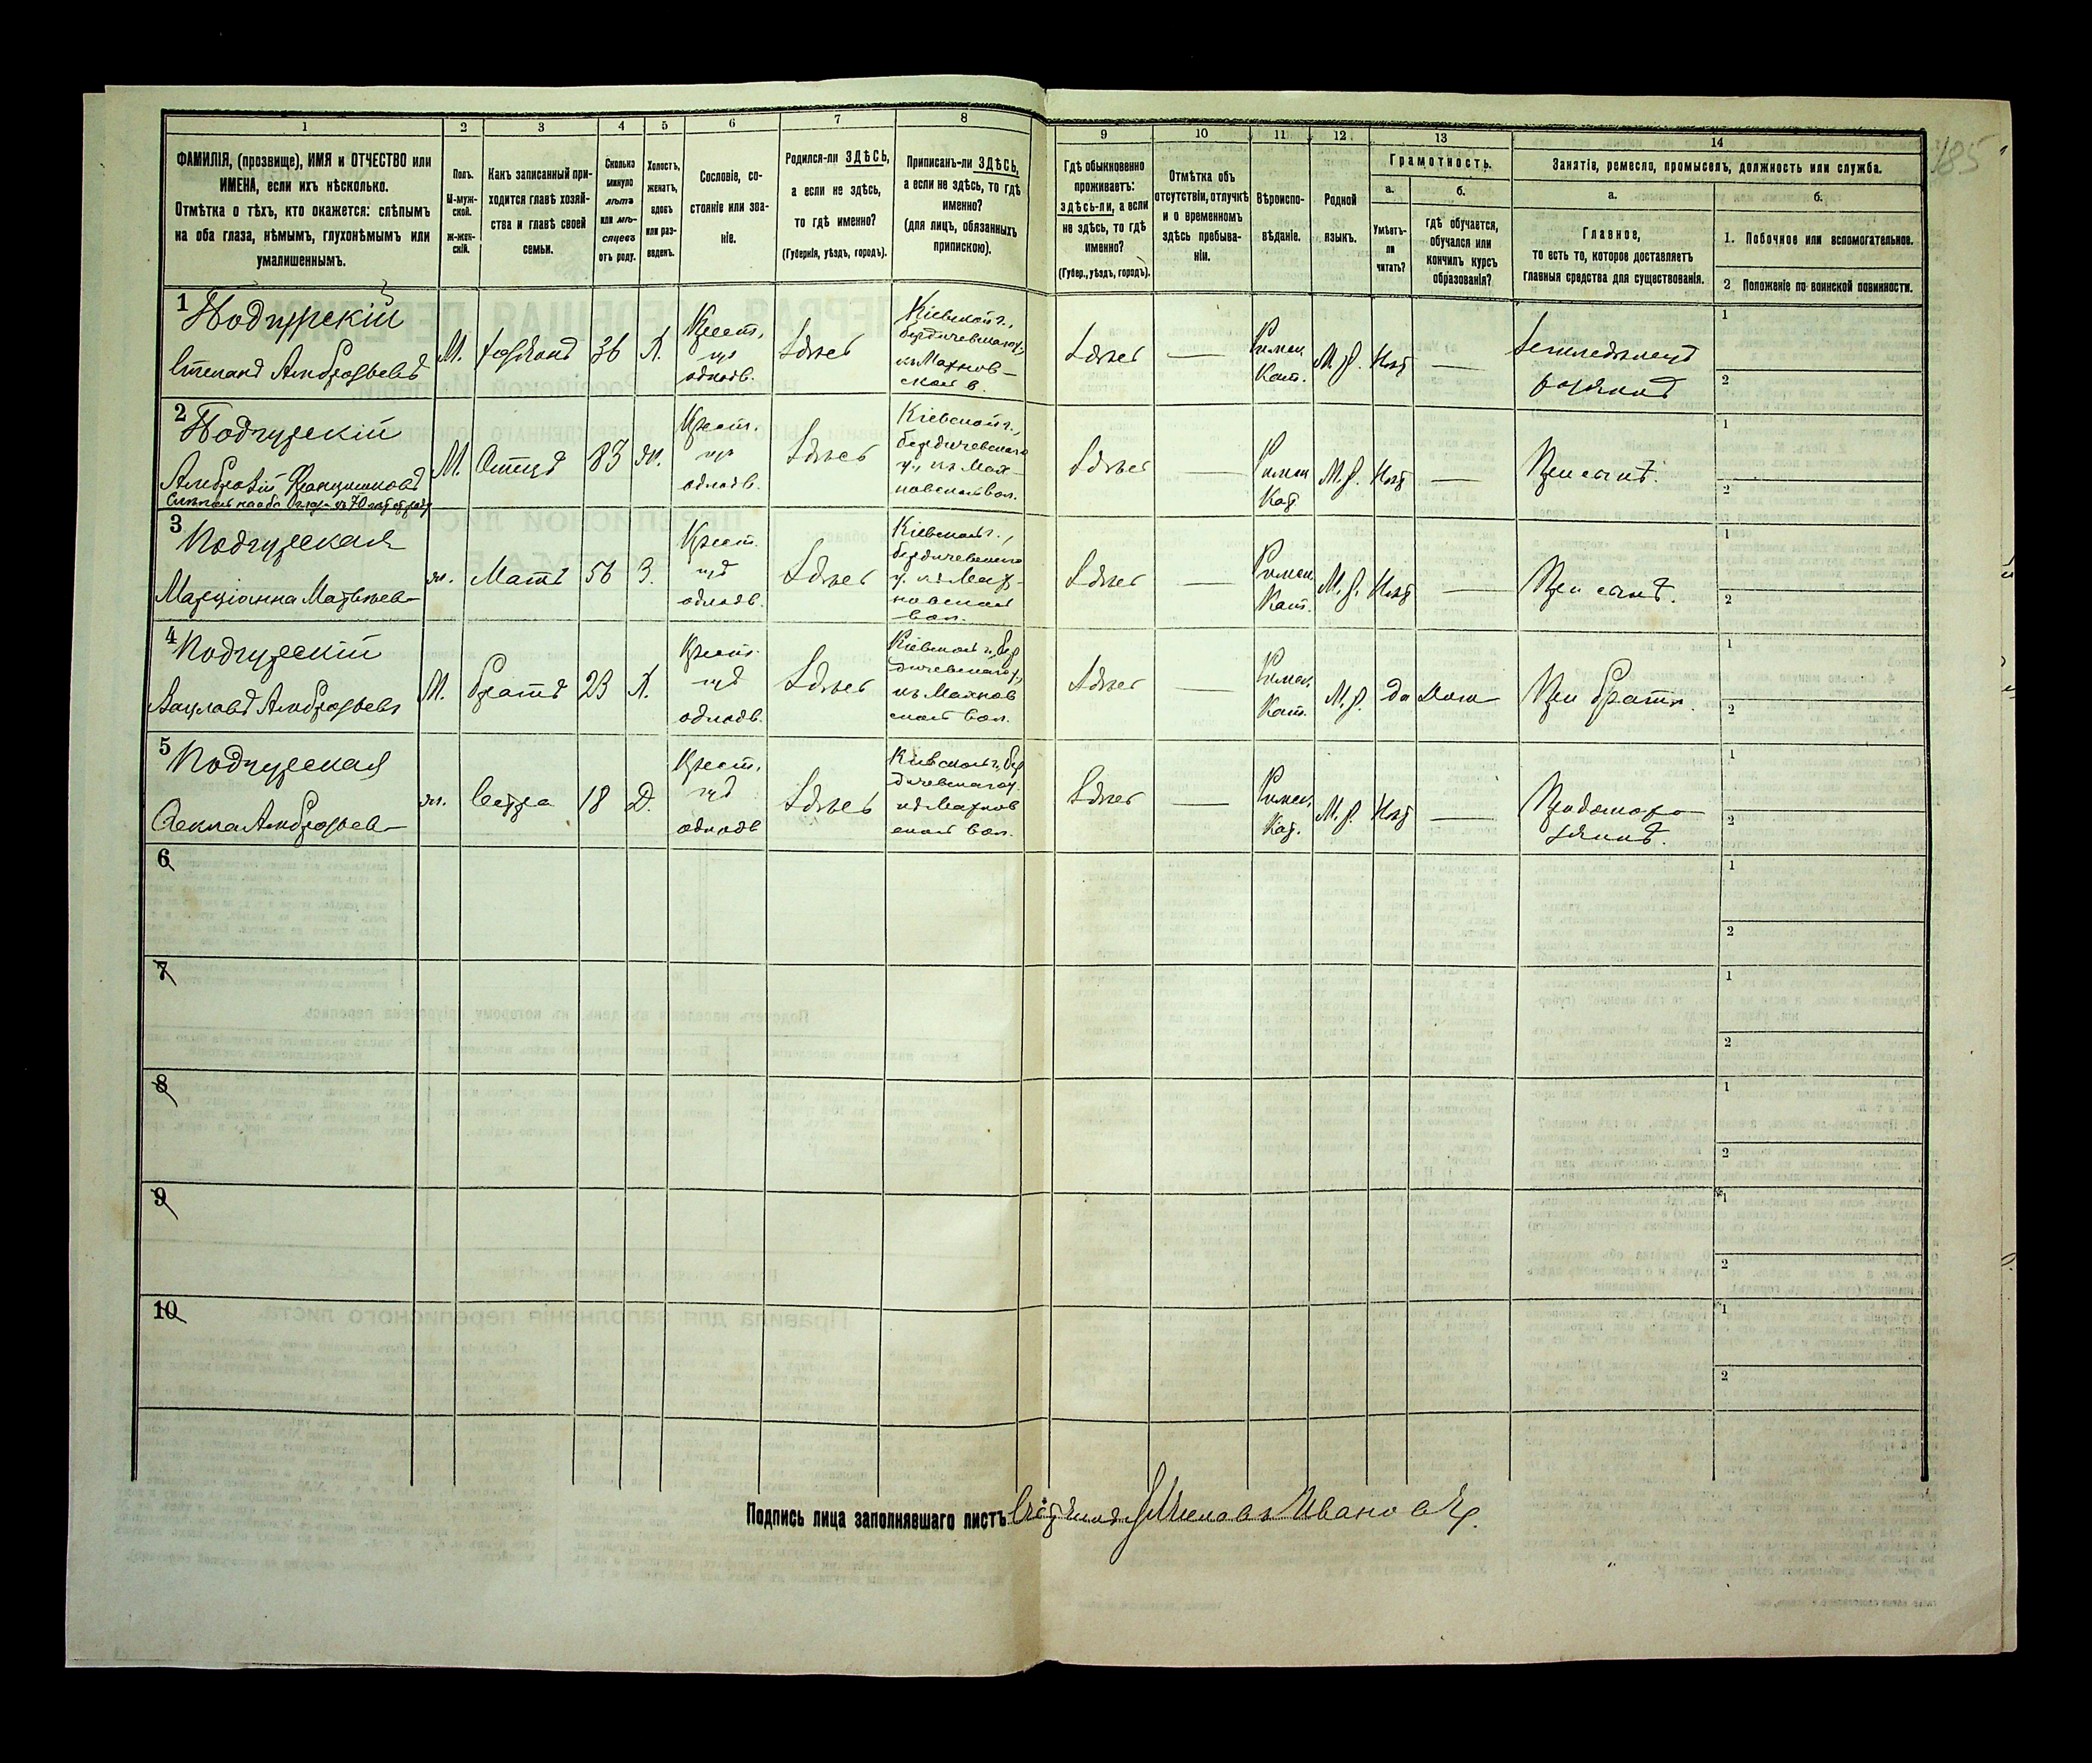 185
1 2 3 4 5 6 7 8 9 10 11 12 13 14
ФАМИЛІЯ, (прозвище), ИМЯ и ОТЧЕСТВО или
ИМЕНА, если ихъ нѣсколько.
Отмѣтка о тѣхъ, кто окажется: слѣпымъ
на оба глаза, нѣмымъ, глухонѣмымъ или
умалишеннымъ.
Полъ.
М-муж-
ской.
Ж-жен-
скій.
Какъ записанный при-
ходится главѣ хозяй-
ства и главѣ своей
семьи.
Сколько
минуло
лѣтъ
или мѣ-
сяцевъ
отъ роду.
Холостъ,
женатъ,
вдовъ
или раз-
веденъ.
Сословіе, со-
стояніе или зва-
ніе.
Родился-ли ЗДѢСЬ,
а если не здѣсь,
то гдѣ именно?
(Губернія, уѣздъ, городъ).
Приписанъ-ли ЗДѢСЬ,
а если не здѣсь, то гдѣ
именно?
(для лицъ, обязанныхъ
припискою).
Гдѣ обыкновенно
проживаетъ:
здѣсь-ли, а если
не здѣсь, то гдѣ
именно?
(Губер., уѣздъ, городъ).
Отмѣтка объ
отсутствіи, отлучкѣ
и о временномъ
здѣсь пребыва-
ніи.
Вѣроиспо-
вѣданіе.
Родной
языкъ.
Грамотность.
а.
Умѣетъ-
ли
читать?
б.
гдѣ обучается,
обучался или
кончилъ курсъ
образованія?
Занятіе, ремесло, промыселъ, должность или служба.
а.
Главное,
то есть то, которое доставляетъ
главныя средства для существованія.
б.
1. Побочное или вспомогательное.
2 Положеніе по воинской повинности.
1 Подгурскій
Степанъ Амброзьевъ
М.
36
Х.
Крест.
изъ
однодв.
Здѣсь
Кіевской г.,
бердичевскаго у.,
къ Махнов-
ской в.
Здѣсь
—
Римск
Кат.
М. р.
Нѣт
—
Земледѣлецъ
1
2
2 Подгурскій
Амброзій Францишковъ
М.
Отецъ
83
Ж.
Крест.
изъ
однодв.
Здѣсь
Кіевской г.,
бердичевскаго
у., къ Мах-
новской вол.
Здѣсь
—
Римск
Кат
М. р.
Нѣт
—
При сынѣ.
1
2
3 Подгурская
Марціанна Матвѣев—
ж.
Мать
56
З.
Крест.
изъ
однодв.
Здѣсь
Кіевской г.,
бердичевскаго
у. къ Мах-
новской
вол.
Здѣсь
—
Римск
Кат.
М. р.
Нѣт
—
При сынѣ.
1
2
4 Подгурскій
Вацлавъ Амброзьевъ
М.
Братъ
23
Х.
Крест.
изъ
однодв.
Здѣсь
Кіевской г., бер
дичевскаго у.,
къ Махнов
ской вол.
Здѣсь
—
Римск.
Кат.
М. р.
да
Дом
При братѣ.
1
2
5 Подгурская
Текла Амброзьев—
ж.
Сестра
18
Д.
Крест.
изъ
однодв
Здѣсь
Кіевской г., бер
дичевскаго у.
къ Махнов
ской вол.
Здѣсь
—
Римск.
Кат.
М. р.
Нѣт
—
1
2
6
1
2
7
1
2
8
1
2
9
1
2
10
1
2
Подпись лица заполнявшаго листъ